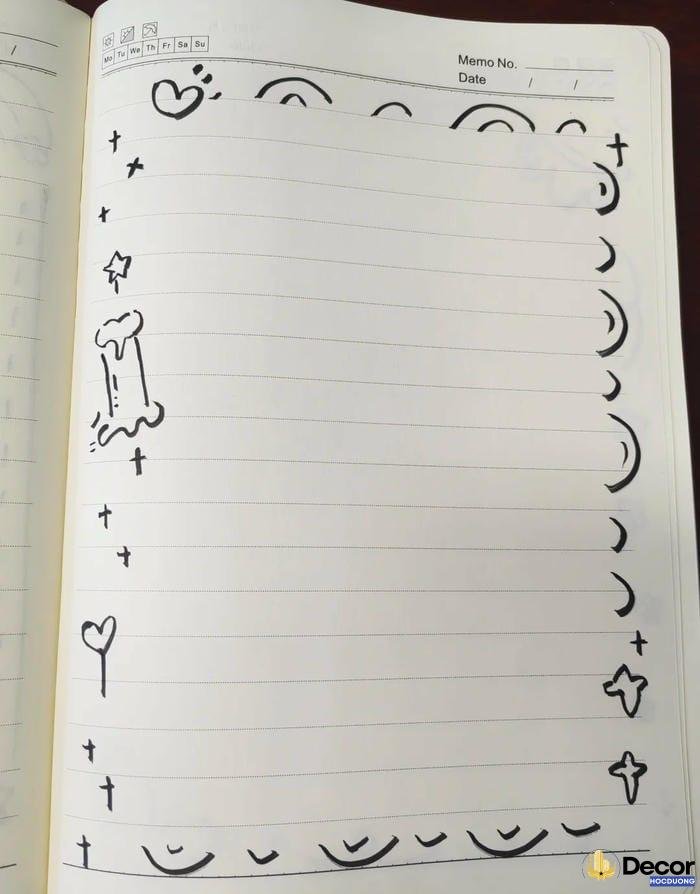 Mo Tu We Th Fr Sa Su
Memo No.
Date / /
/
Decor
HOCDUONG